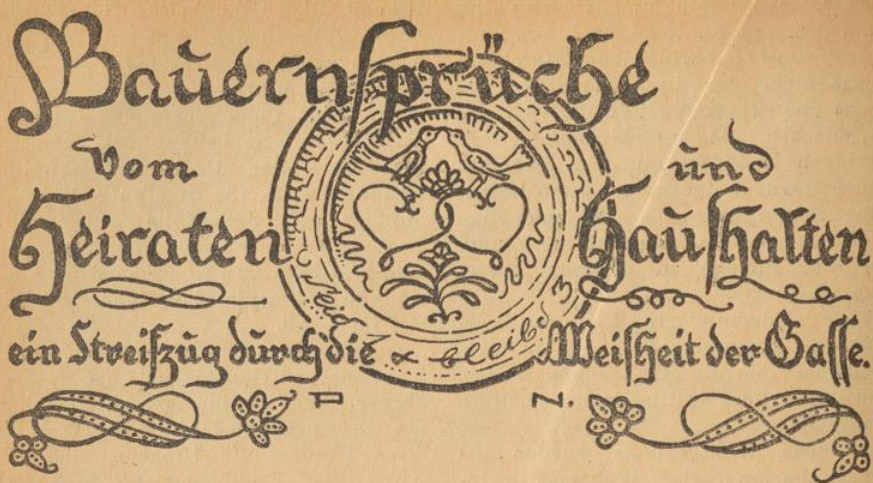 Bauernsprüche
vom
Heiraten
und
Haushalten
ein Streifzug durch die Weisheit der Gasse.